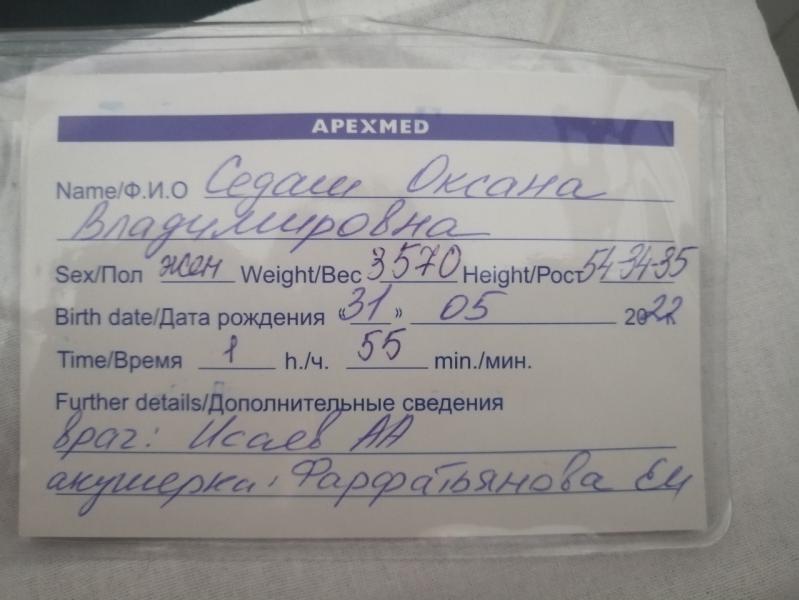 APEXMED
Name/Ф.И.О Седаш Оксана
Владимировна
Sex/Пол жен Weight/Вес 3570 Height/Рост 54-34-35
Birth date/Дата рождения «31» 05 2022
Time/Время 1 h./ч. 55 min./мин.
Further details/Дополнительные сведения
врач: Исаев АА
акушерка: Фарфатьянова ЕИ